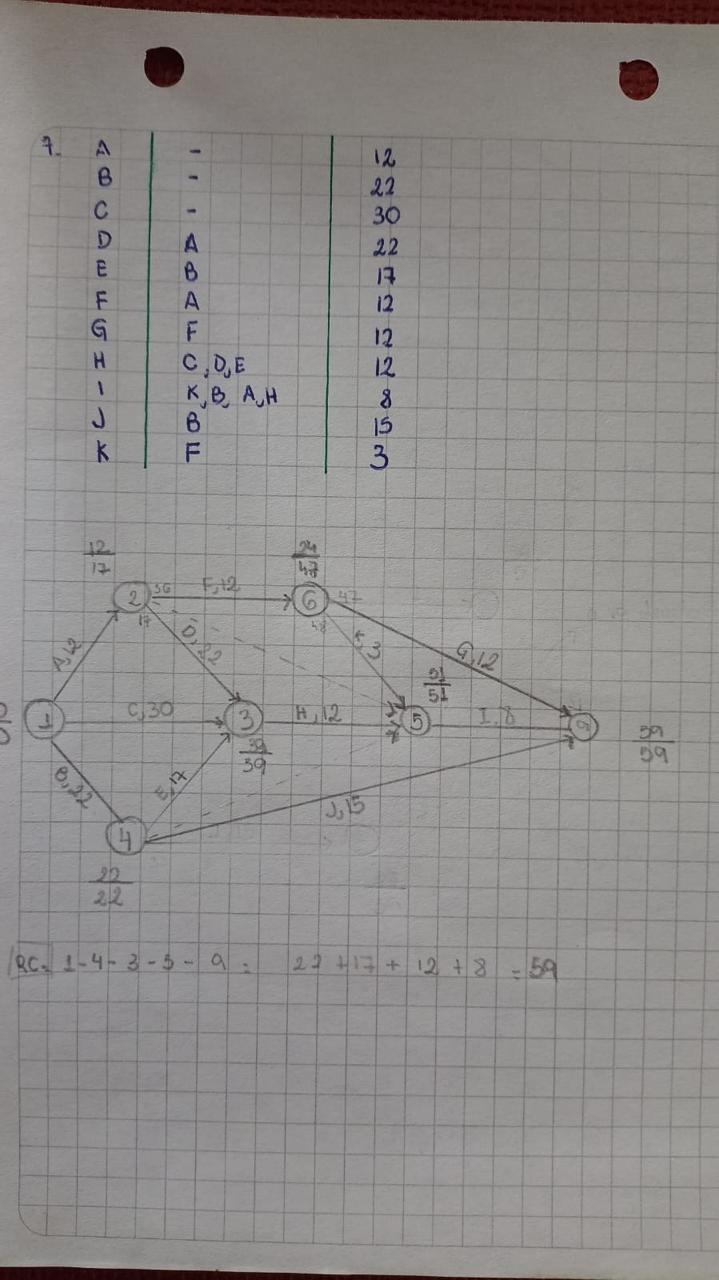 7. A - 12
B - 22
C - 30
D A 22
E B 17
F A 12
G F 12
H C, D, E 12
I K, B, A, H 8
J B 15
K F 3
12
17
24
47
2 36 F, 12 6 47
17 48
D, 22 K, 3 G, 12
A, 12
51
51
0
0
1 C, 30 3 H, 12 5 I, 8 9
39
39
59
59
B, 22 E, 17
4 J, 15
22
22
R.C. 1 - 4 - 3 - 5 - 9 = 22 + 17 + 12 + 8 = 59